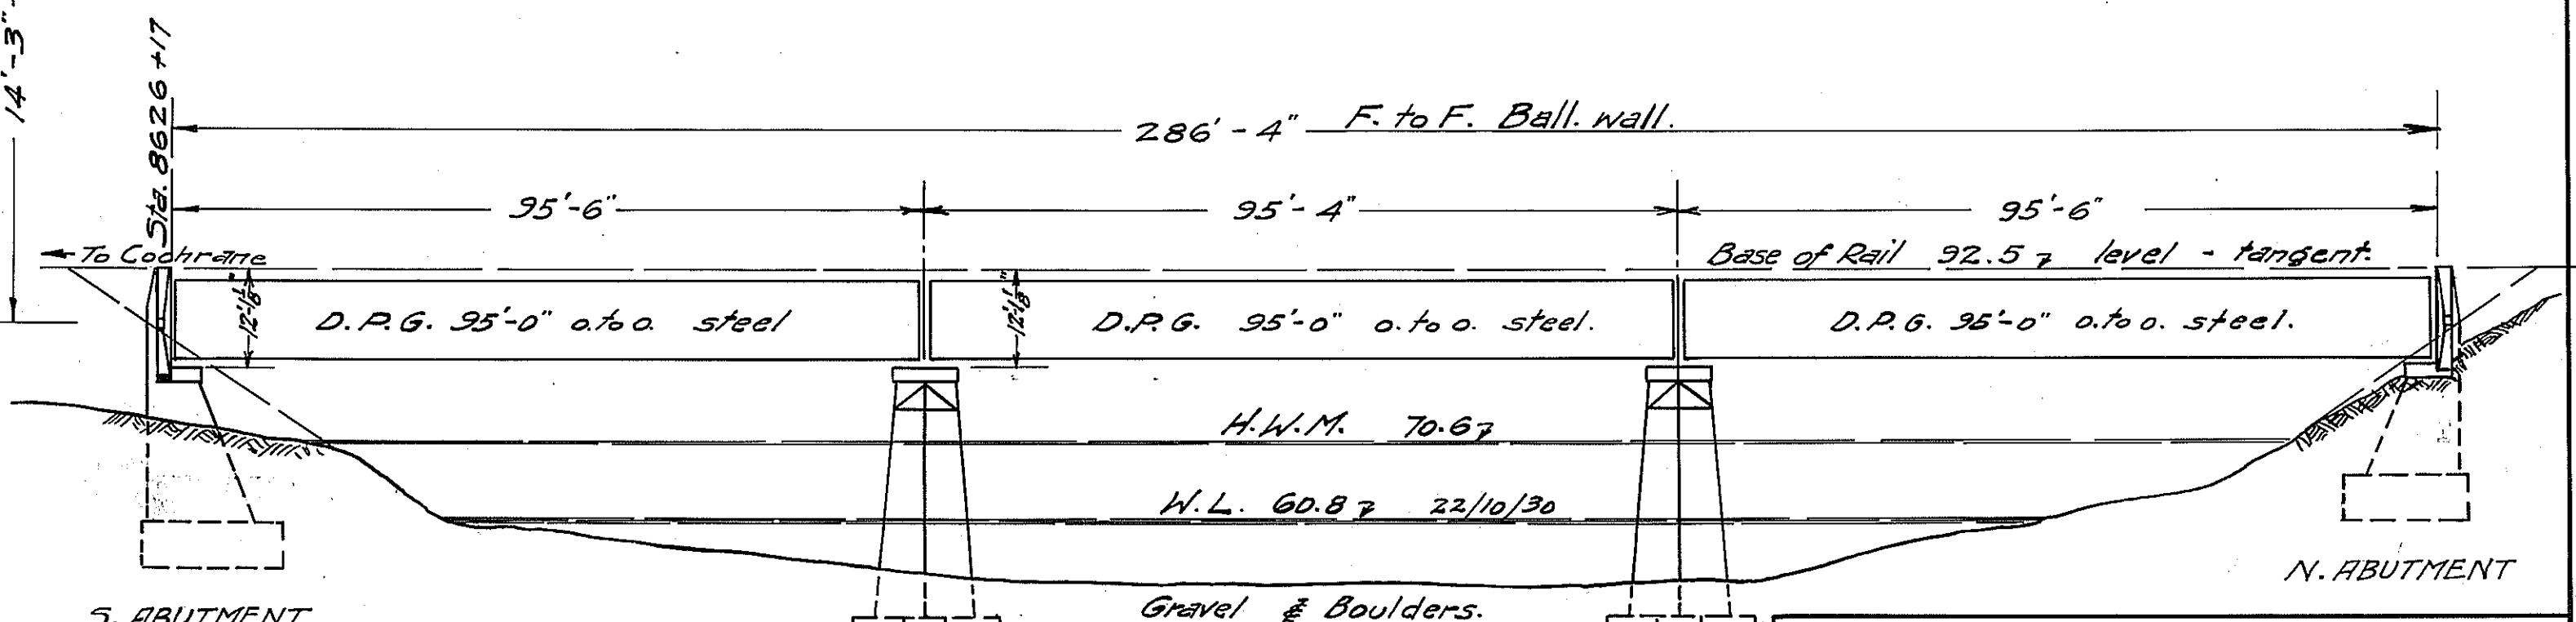 14'-3"
Sta. 8626+17
286'-4" F. to F. Ball. wall.
95'-6" 95'-4" 95'-6"
To Cochrane
Base of Rail 92.57 level - tangent.
12'-1⅛" 12'-1⅛"
D.P.G. 95'-0" o.to o. steel D.P.G. 95'-0" o.to o. steel. D.P.G. 95'-0" o.to o. steel.
H.W.M. 70.67
W.L. 60.87 22/10/30
N. ABUTMENT
S. ABUTMENT
Gravel & Boulders.